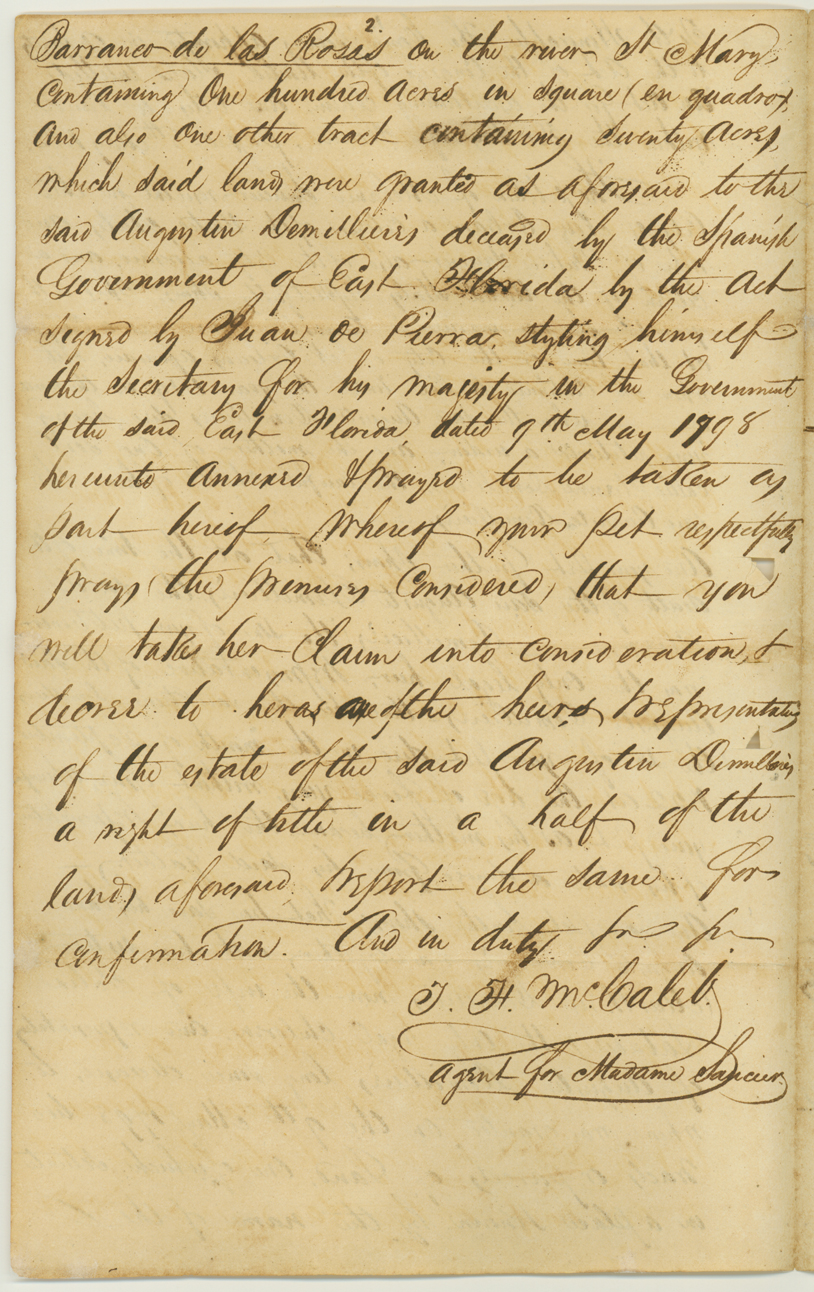 2.
Barranco de las Rosas on the river St Mary,
Containing One hundred Acres in square (en quadro),
And also One other tract containing Seventy Acres,
which said lands were granted as aforesaid to the
said Augustin Demillieres deceased by the Spanish
Government of East Florida by the Act
signed by Juan de Pierra, styling himself
the Secretary for his majesty in the Government
of the said East Florida, dated 9th May 1798
hereunto Annexed & prayed to be taken as
part hereof, Whereof your Pet respectfully
prays (the premises Considered) that you
will take her Claim into consideration, &
decree to her as one of the heirs & representatives
of the estate of the said Augustin Demillieres
a right of title in a half of the
lands aforesaid, & report the same for
Confirmation. And in duty
T. H. McCaleb.
Agent for Madame Saucier